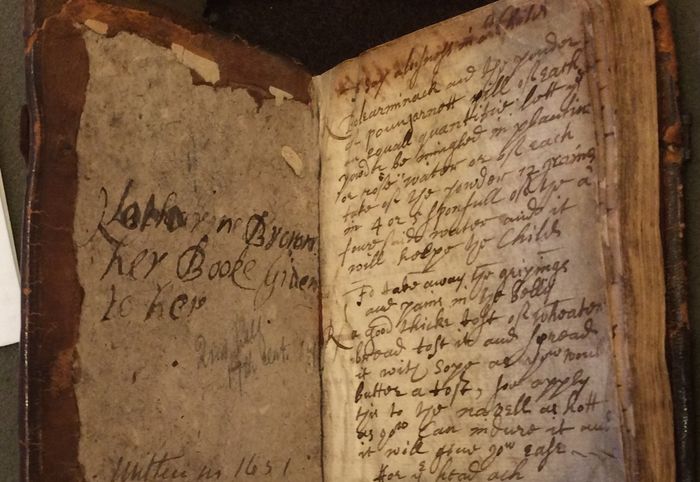 Katherine Brown
her Booke Given
to her
2nd half
17th Cent.
Written in 1651
in a Childe
and the ponder
of pomgarnett pill of each
an equall quantitie lett ye
ponder be mingled in plantin
or rose water or of each
take of the ponder 12 grains
in 4 or 5 sponfull of the a
fore said water and it
will helpe the Childe
To take away the gripings
and pains in the belly
R a good thicke tost of wheaten
bread tost it and spread
it with sope as you would
butter a tost, soe apply
this to the navell as hott
as you can indure it and
it will give you ease
For ye head ach